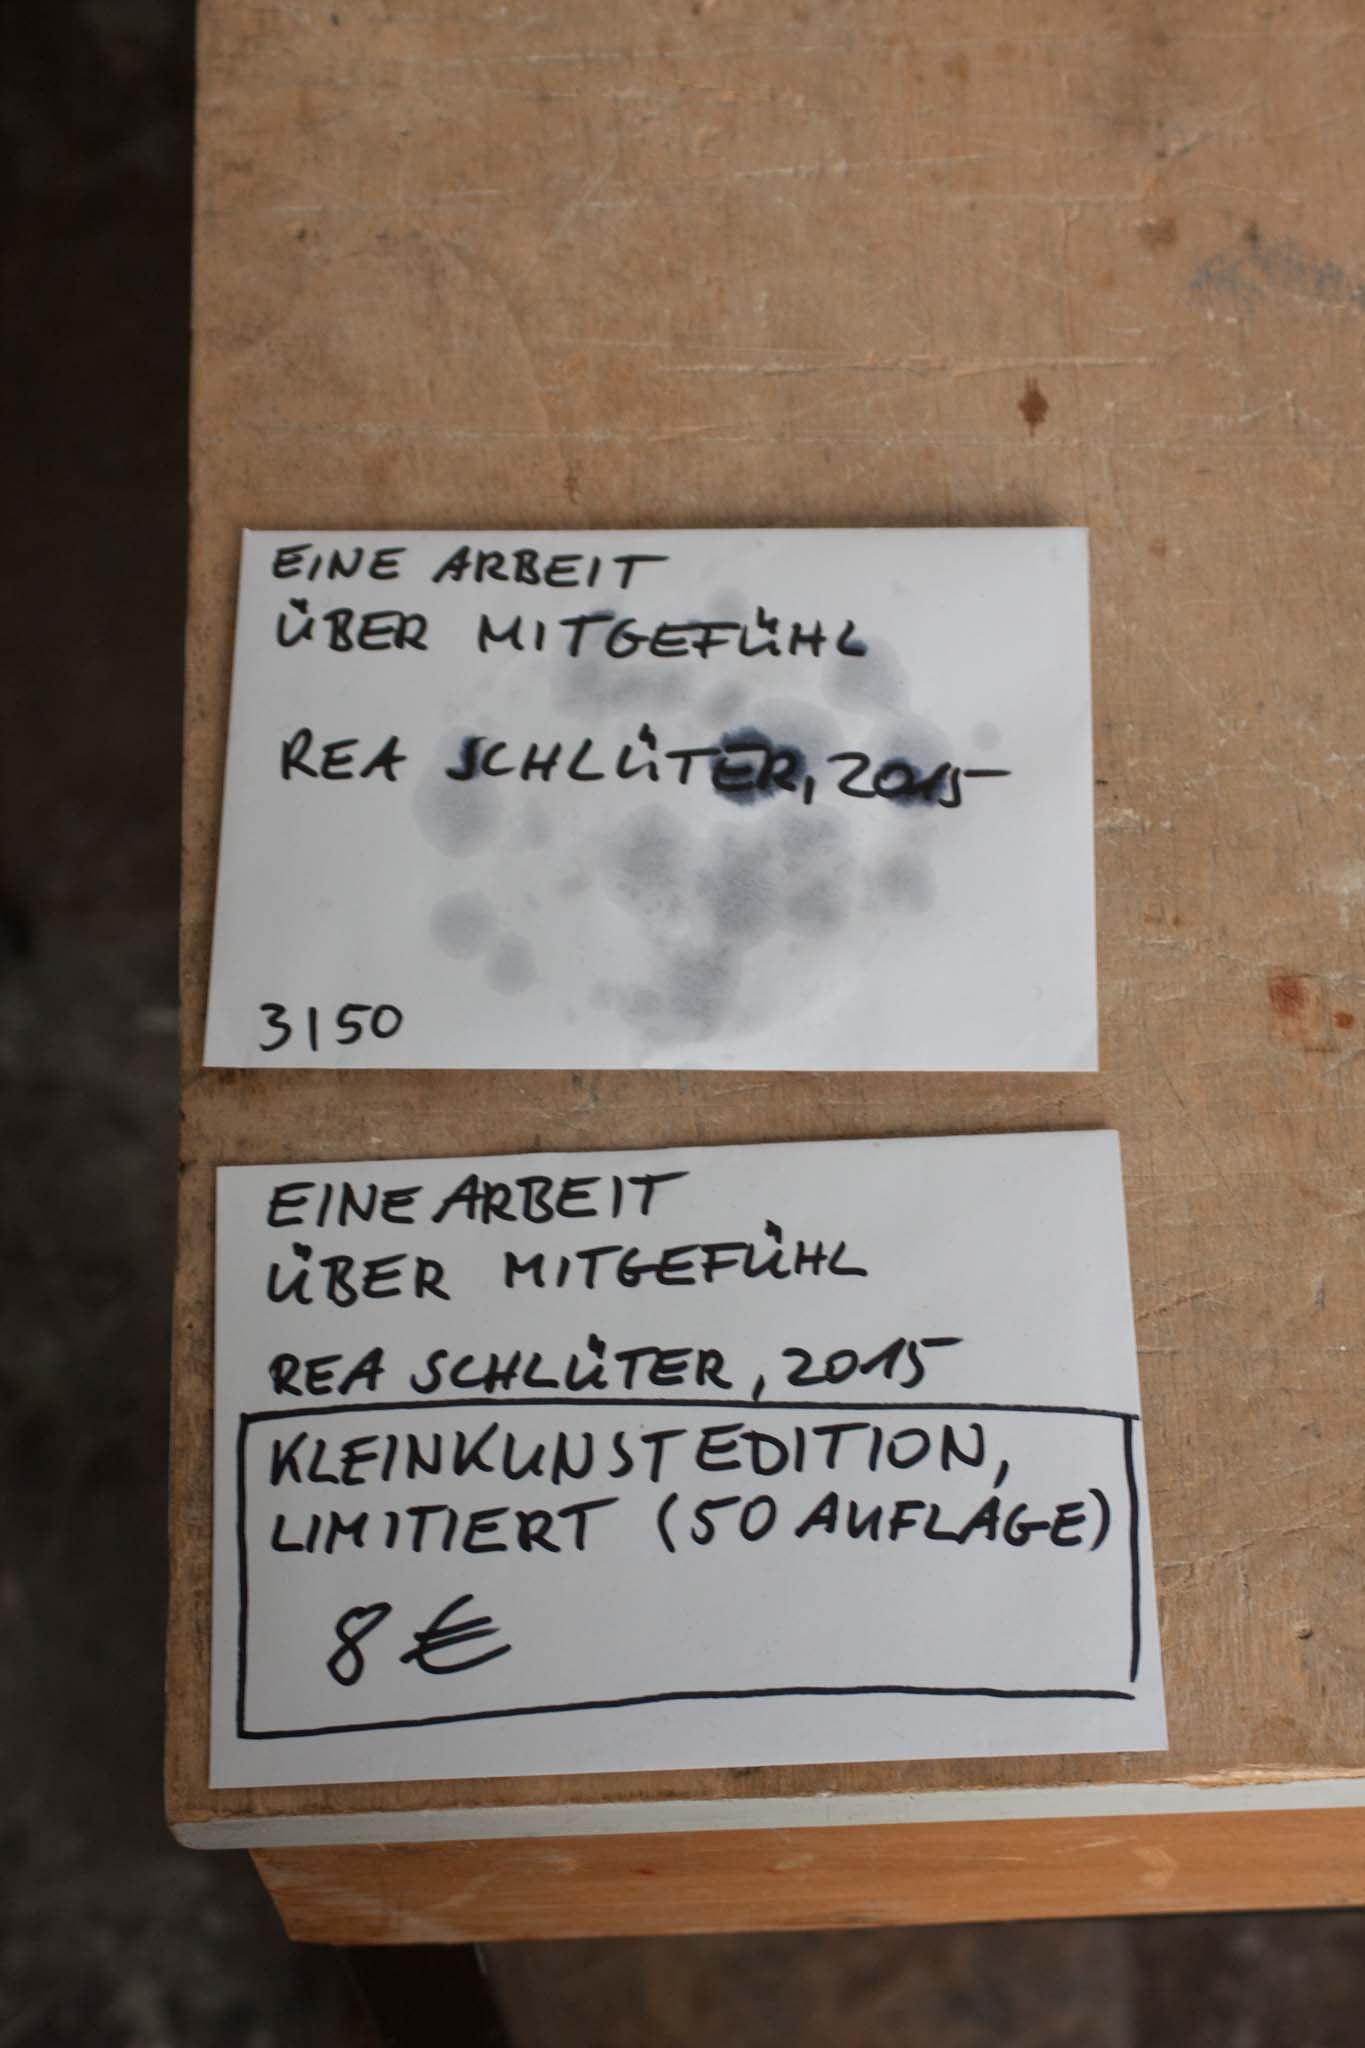 EINE ARBEIT
ÜBER MITGEFÜHL
REA SCHLÜTER, 2015
3|50
EINE ARBEIT
ÜBER MITGEFÜHL
REA SCHLÜTER, 2015
KLEINKUNSTEDITION,
LIMITIERT (50 AUFLAGE)
8 €